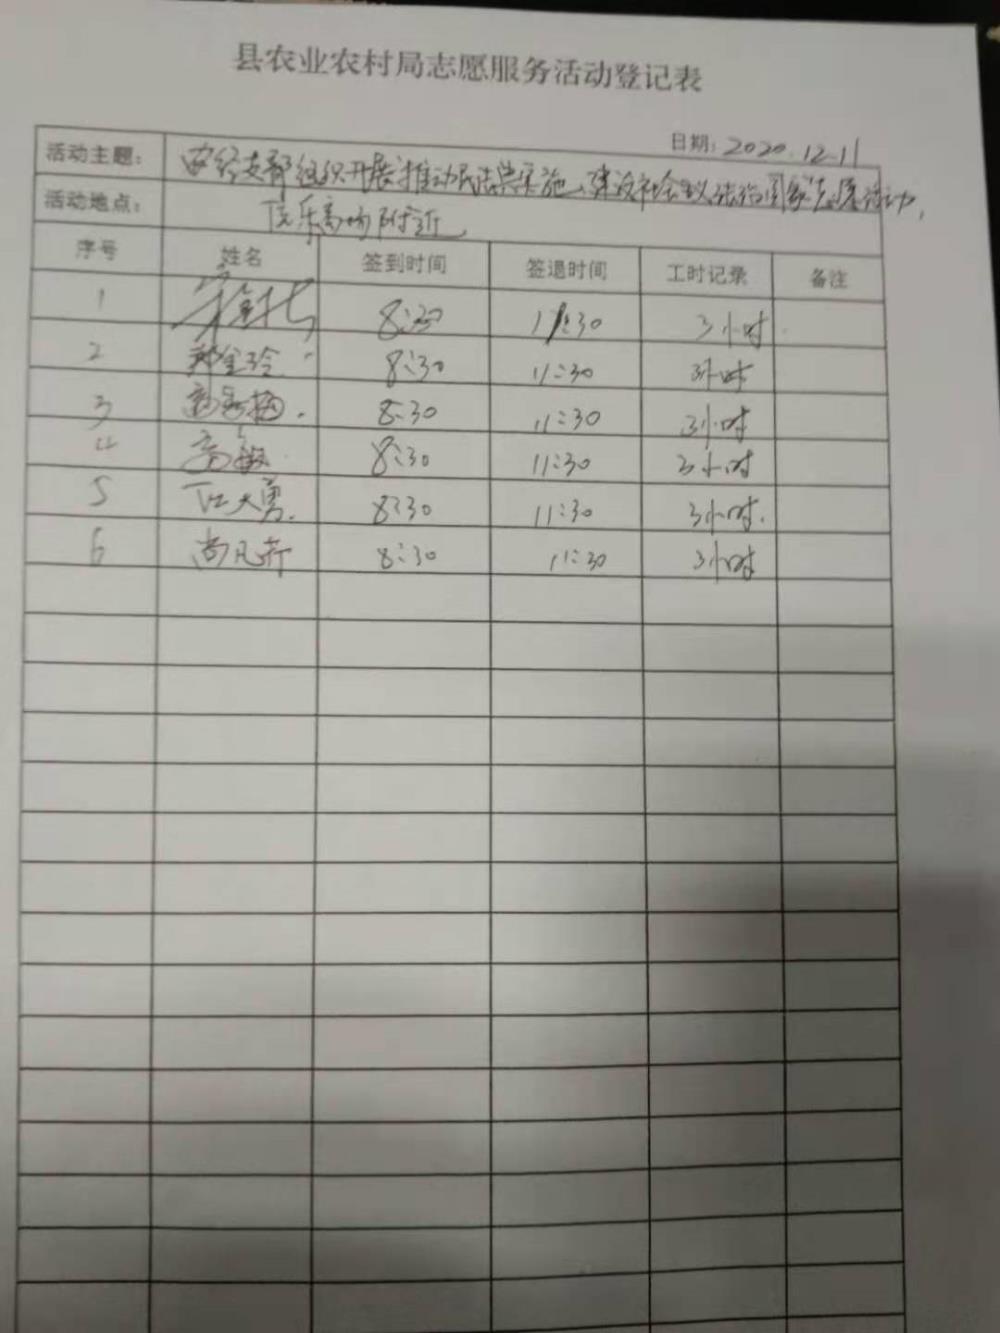 县农业农村局志愿服务活动登记表
日期：2020.12.11
活动主题： 经支部组织开展推动民法典实施、建设社会主义法治国家志愿活动,
活动地点： 广场附近
序号 姓名 签到时间 签退时间 工时记录 备注
1 8:30 11:30 3小时
2 郑金玲 8:30 11:30 3小时
3 8:30 11:30 3小时
4 8:30 11:30 3小时
5 大勇 8:30 11:30 3小时
6 尚凡 8:30 11:30 3小时